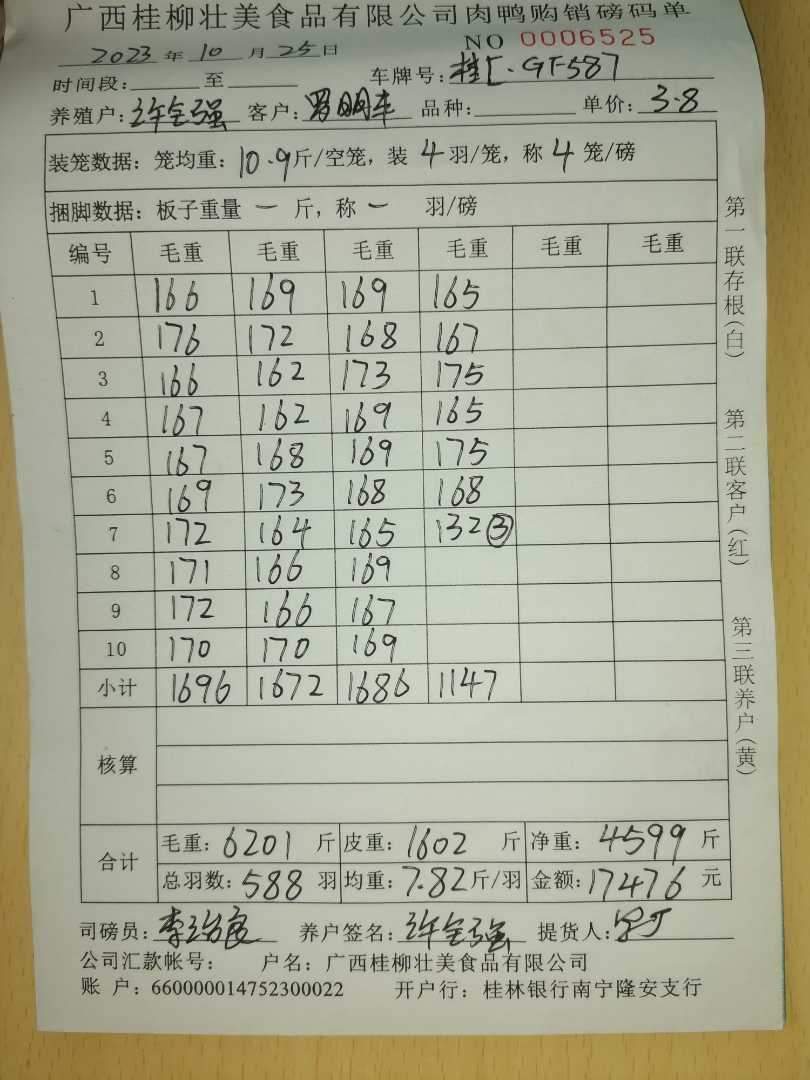 广西桂柳壮美食品有限公司肉鸭购销磅码单
2023 年 10 月 25 日 NO 0006525
时间段: 至 车牌号: 桂E·GF587
养殖户: 许全强 客户: 罗明丰 品种: 单价: 3.8
装笼数据: 笼均重: 10.9 斤/空笼, 装 4 羽/笼, 称 4 笼/磅
捆脚数据: 板子重量 一 斤, 称 一 羽/磅
编号 毛重 毛重 毛重 毛重 毛重 毛重
1 166 169 169 165
2 176 172 168 167
3 166 162 173 175
4 167 162 169 165
5 167 168 169 175
6 169 173 168 168
7 172 164 165 132 ③
8 171 166 169
9 172 166 167
10 170 170 169
小计 1696 1672 1686 1147
核算
合计 毛重: 6201 斤 皮重: 1602 斤 净重: 4599 斤
总羽数: 588 羽 均重: 7.82 斤/羽 金额: 17476 元
司磅员: 李治良 养户签名: 许全强 提货人:
公司汇款帐号: 户名: 广西桂柳壮美食品有限公司
账 户: 660000014752300022 开户行: 桂林银行南宁隆安支行
第一联存根(白) 第二联客户(红) 第三联养户(黄)